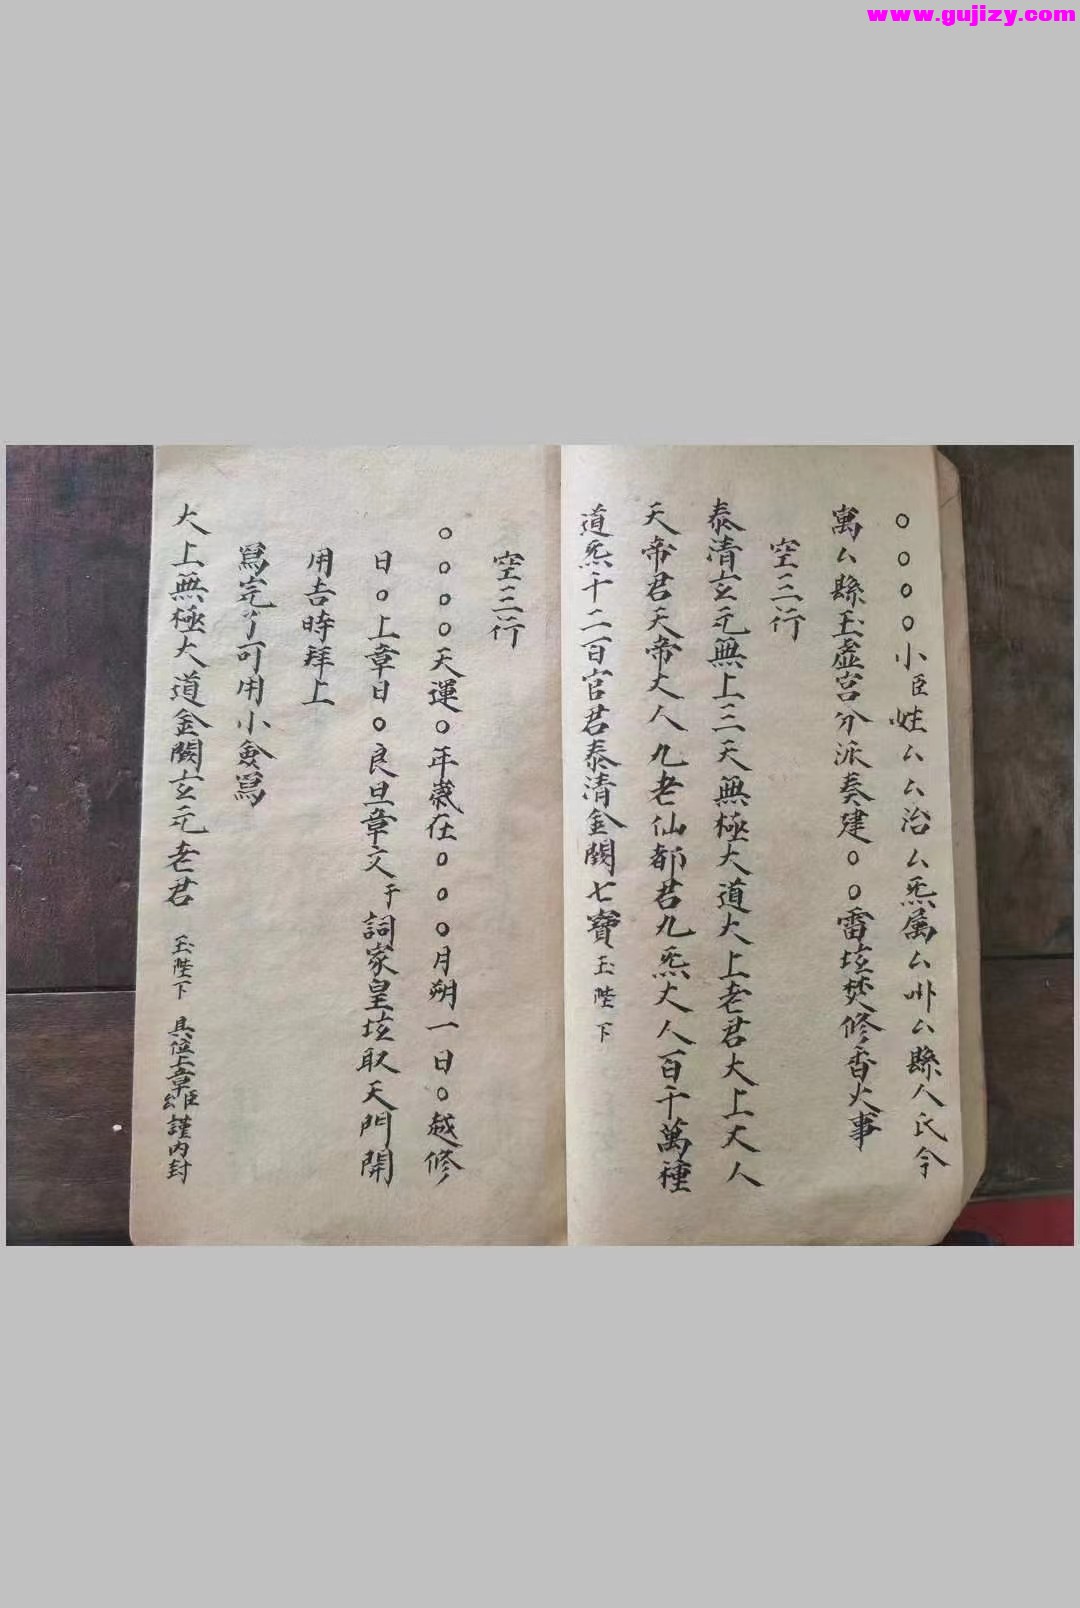 www.gujizy.com
○○○○小臣姓厶厶治厶炁属厶州厶縣人氏今
寓厶縣玉虚宫分派奏建○○雷坛焚修香火事
空三行
泰清玄元無上三天無極大道大上老君大上丈人
天帝君天帝丈人九老仙都君九炁丈人百千萬種
道炁千二百官君泰清金闕七寶玉陛下
空三行
○○○○天運○年歲在○○○月朔一日○越修
日○上章日○良旦章文于詞家皇坛取天門開
用吉時拜上
寫完了可用小寫
大上無極大道金闕玄元老君 玉陛下 具位上章臣謹内封